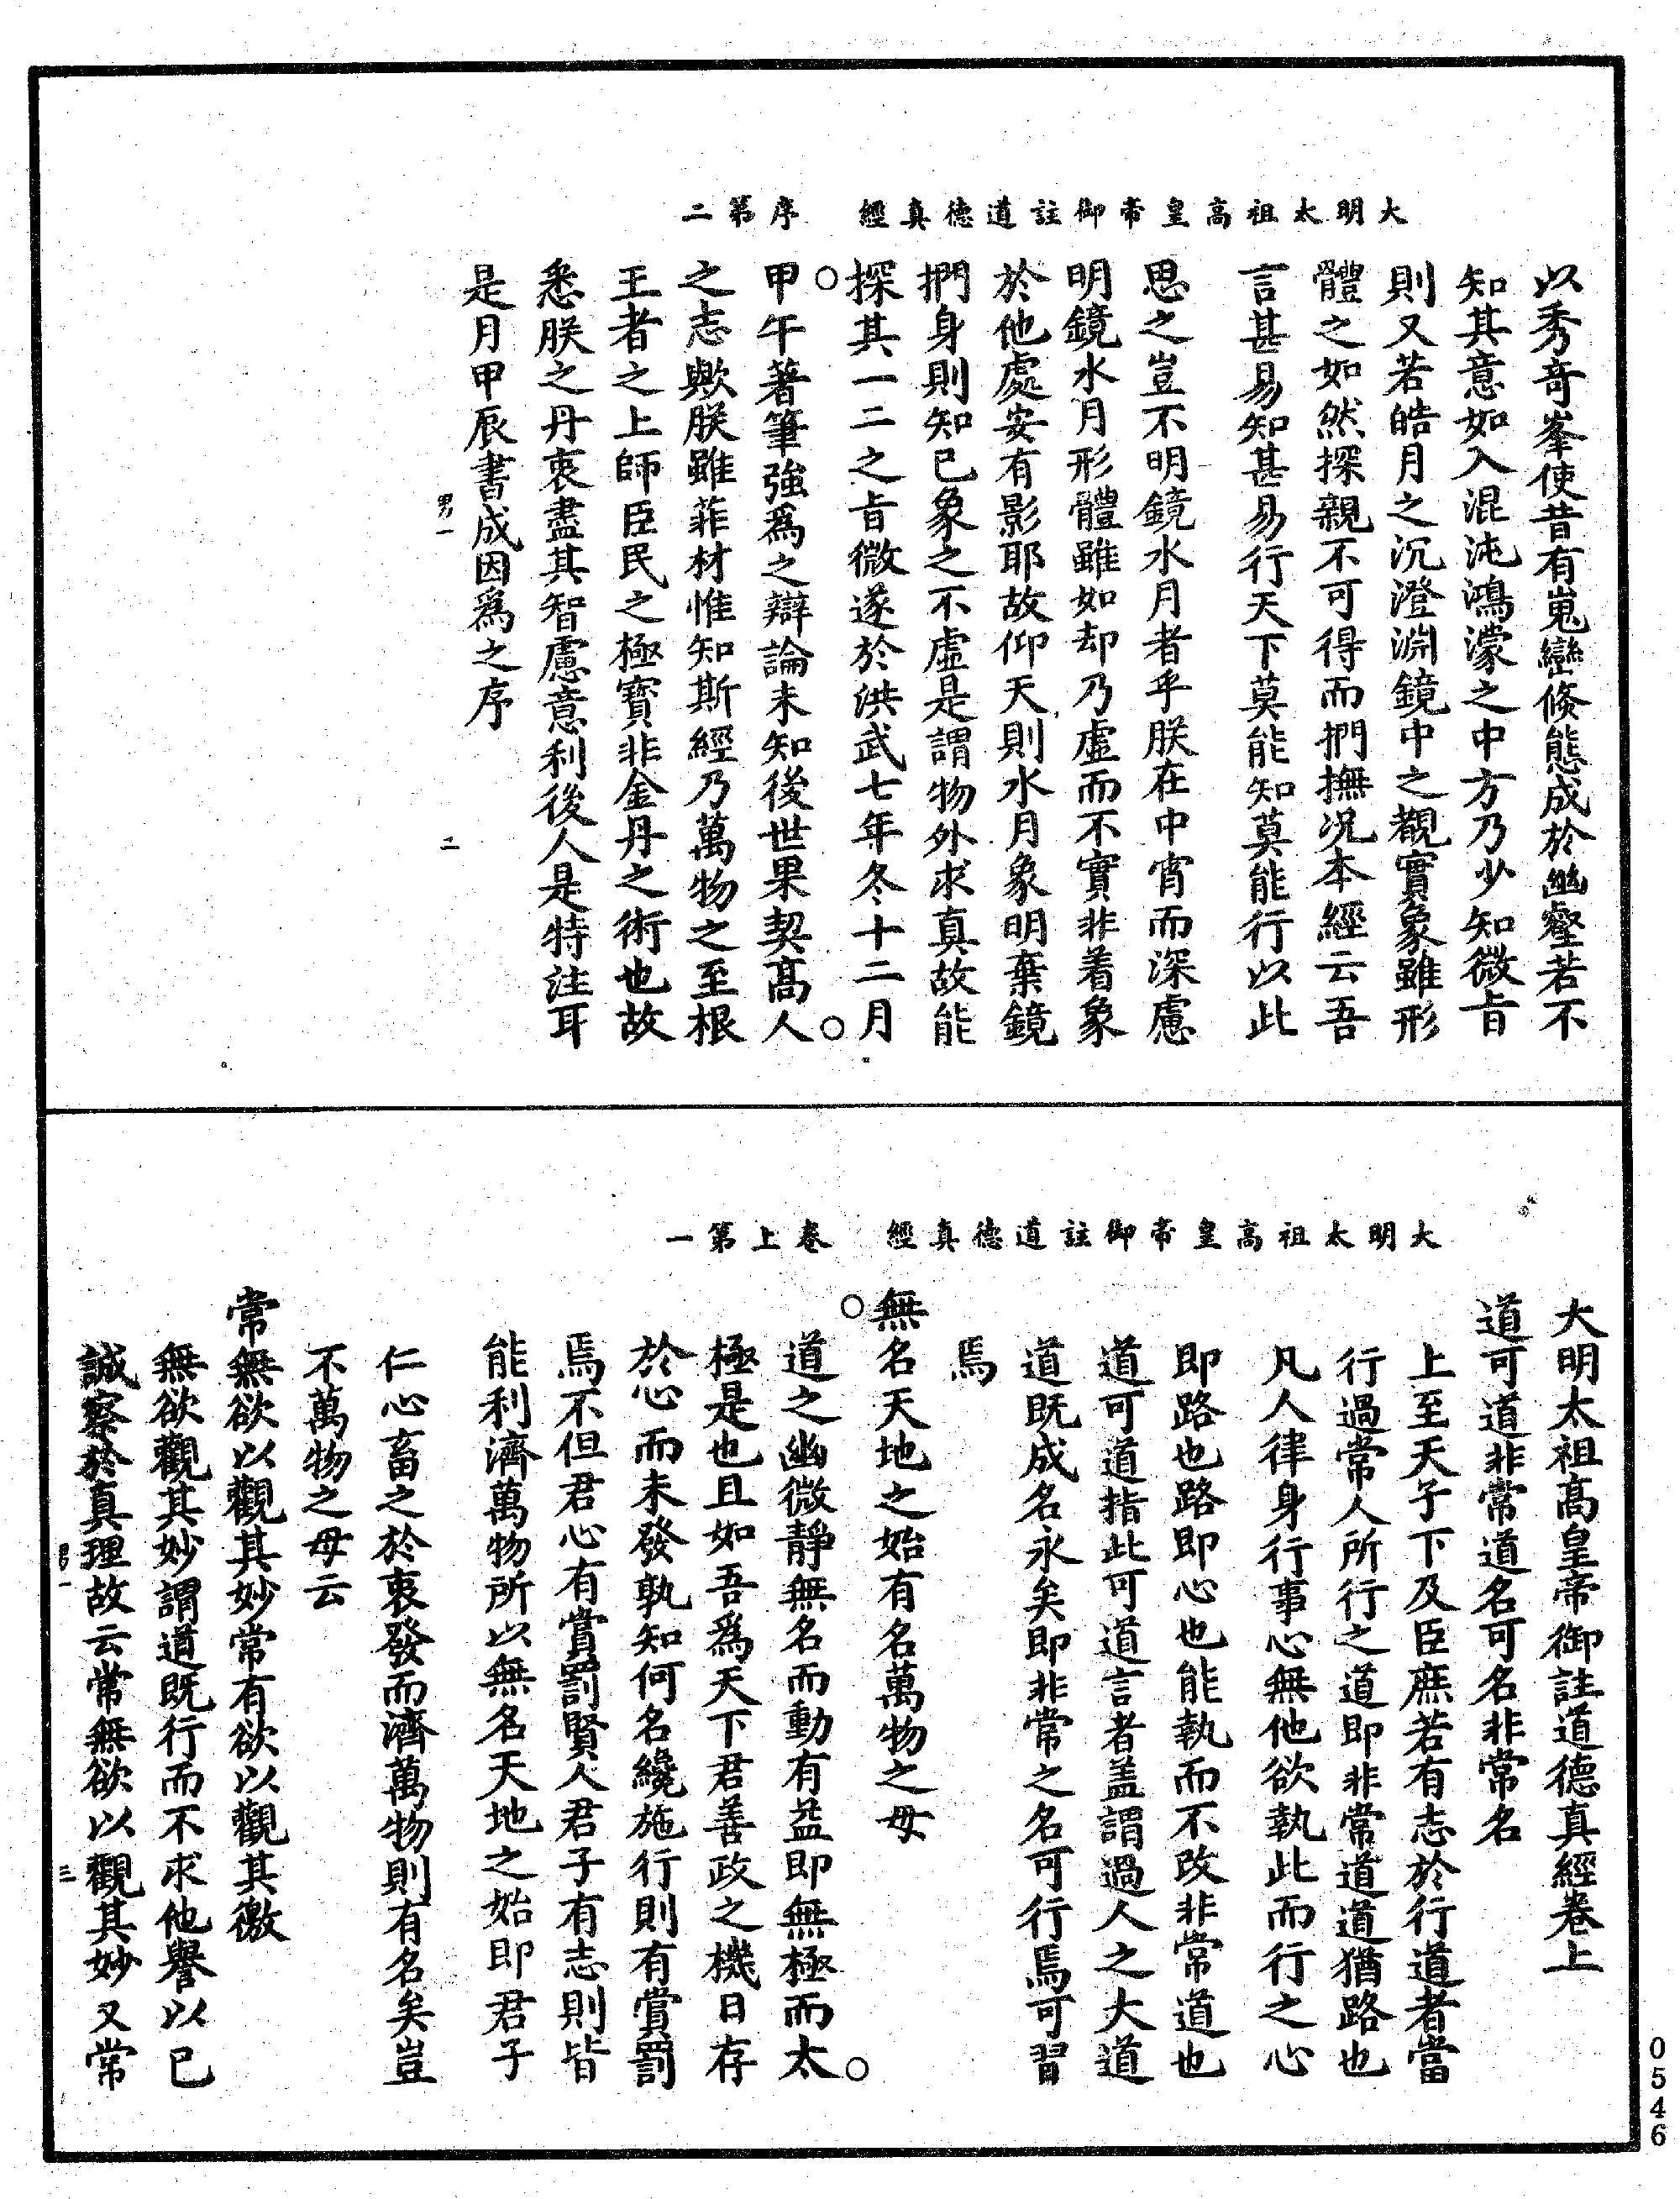 大明太祖高皇帝御註道德真經　序第二
以秀奇峯使昔有嵬巒倐態成於幽壑若不
知其意如入混沌鴻濛之中方乃少知微旨
則又若皓月之沉澄淵鏡中之覩實象雖形
體之如然探親不可得而捫撫况本經云吾
言甚易知甚易行天下莫能知莫能行以此
思之豈不明鏡水月者乎朕在中宵而深慮
明鏡水月形體雖如却乃虛而不實非着象
於他處安有影耶故仰天則水月象明棄鏡
捫身則知己象之不虛是謂物外求真故能
探其一二之旨微遂於洪武七年冬十二月
甲午著筆強為之辯論未知後世果契高人
之志歟朕雖菲材惟知斯經乃萬物之至根
王者之上師臣民之極寶非金丹之術也故
悉朕之丹衷盡其智慮意利後人是特注耳
是月甲辰書成因為之序
男一
二
大明太祖高皇帝御註道德真經　卷上第一
大明太祖高皇帝御註道德真經卷上
道可道非常道名可名非常名
上至天子下及臣庶若有志於行道者當
行過常人所行之道即非常道道猶路也
凡人律身行事心無他欲執此而行之心
即路也路即心也能執而不改非常道也
道可道指此可道言者盖謂過人之大道
道既成名永矣即非常之名可行焉可習
焉
無名天地之始有名萬物之母
道之幽微靜無名而動有益即無極而太
極是也且如吾為天下君善政之機日存
於心而未發孰知何名纔施行則有賞罰
焉不但君心有賞罰賢人君子有志則皆
能利濟萬物所以無名天地之始即君子
仁心畜之於衷發而濟萬物則有名矣豈
不萬物之母云
常無欲以觀其妙常有欲以觀其徼
無欲觀其妙謂道既行而不求他譽以己
誠察於真理故云常無欲以觀其妙又常
男一
三
0546